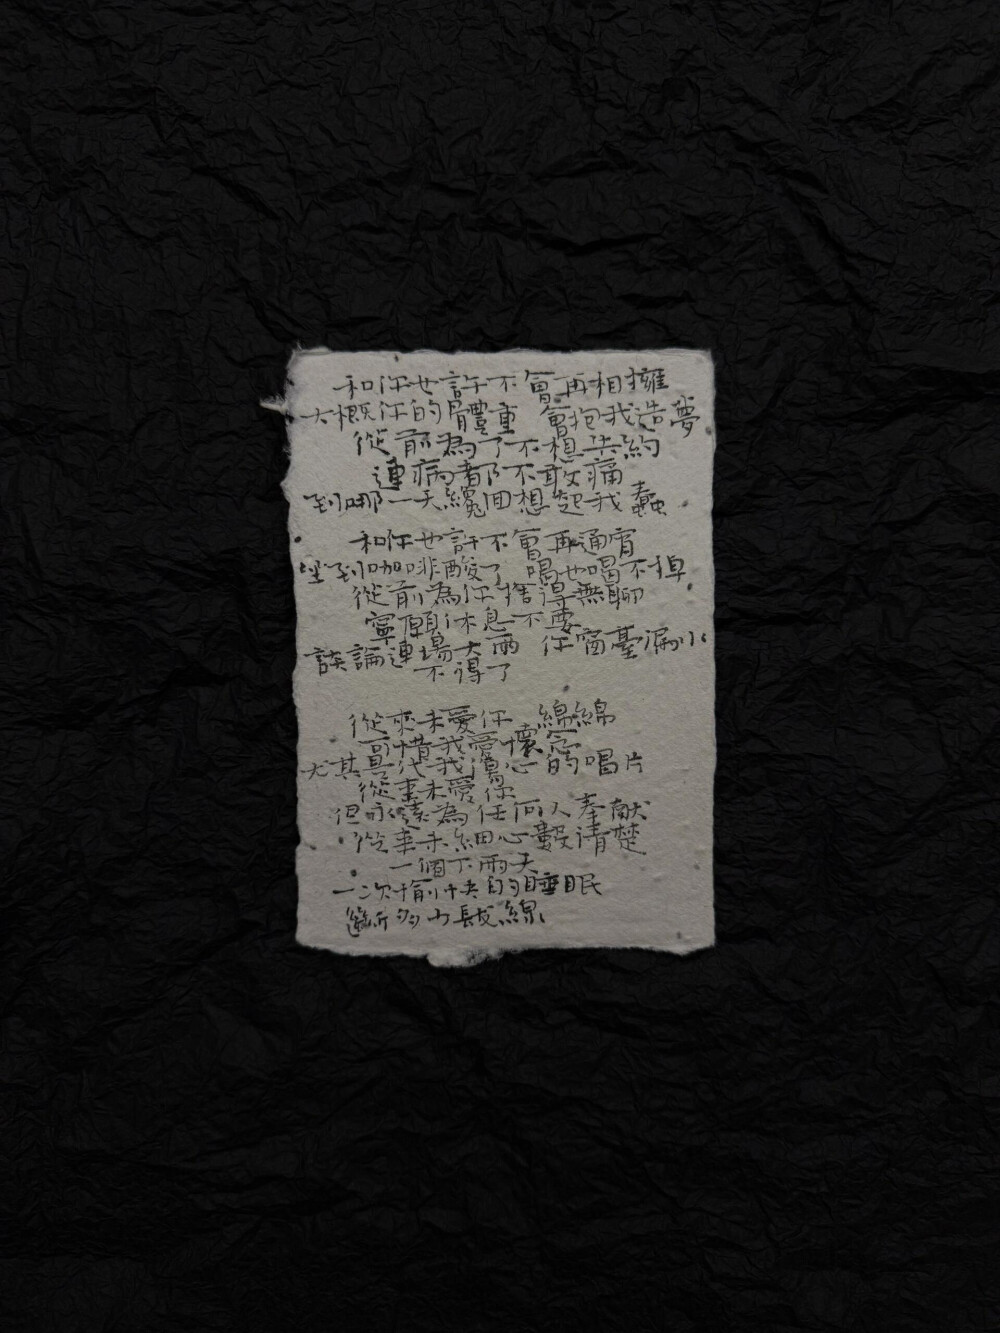 和你也許不會再相擁
大概你的體重 會抱我造夢
從前為了不想失約
連病都不敢病
到哪一天纔回想起我蠢
和你也許不會再通宵
坐到咖啡酸了 喝也喝不掉
從前為你捨得無聊
寧願休息不要
談論連場大雨 你窗臺漏水
不得了
從來未愛你 綿綿
可惜我愛懷念
尤其是代我傷心的唱片
從來未愛你
但永遠為任何人奉献
從來未細心數清楚
一個下雨天
一次愉快的睡眠
斷多少髮線